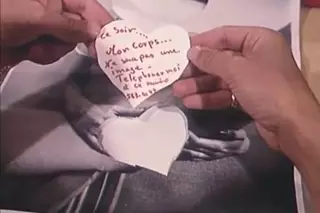 Ce soir....
Mon corps...
Ne sera pas une
image.
Téléphonez moi
à ce numéro